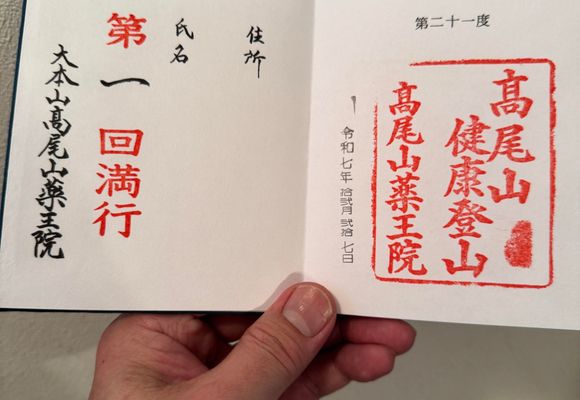 第二十一度
高尾山
健康登山
高尾山薬王院
令和七年 拾弐月 弐拾 七日
住所
氏名
第一回満行
大本山高尾山薬王院